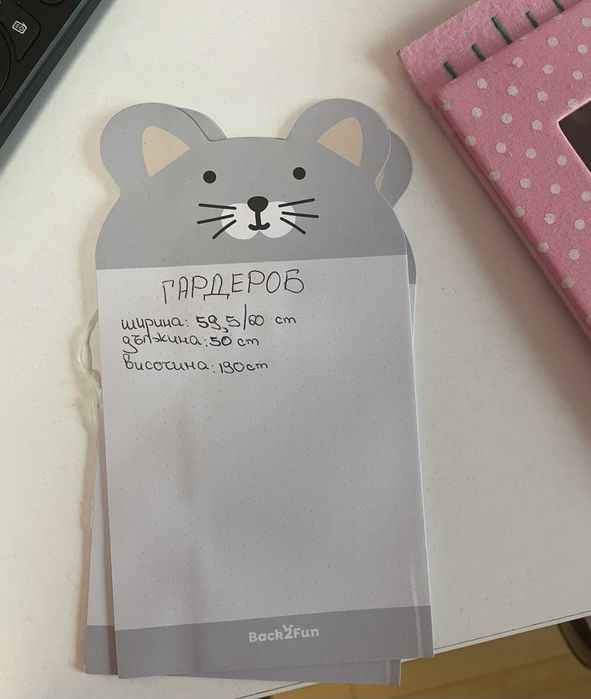 ГАРДЕРОБ
ширина: 59,5/60 cm
дължина: 50 cm
височина: 190cm
Back2Fun